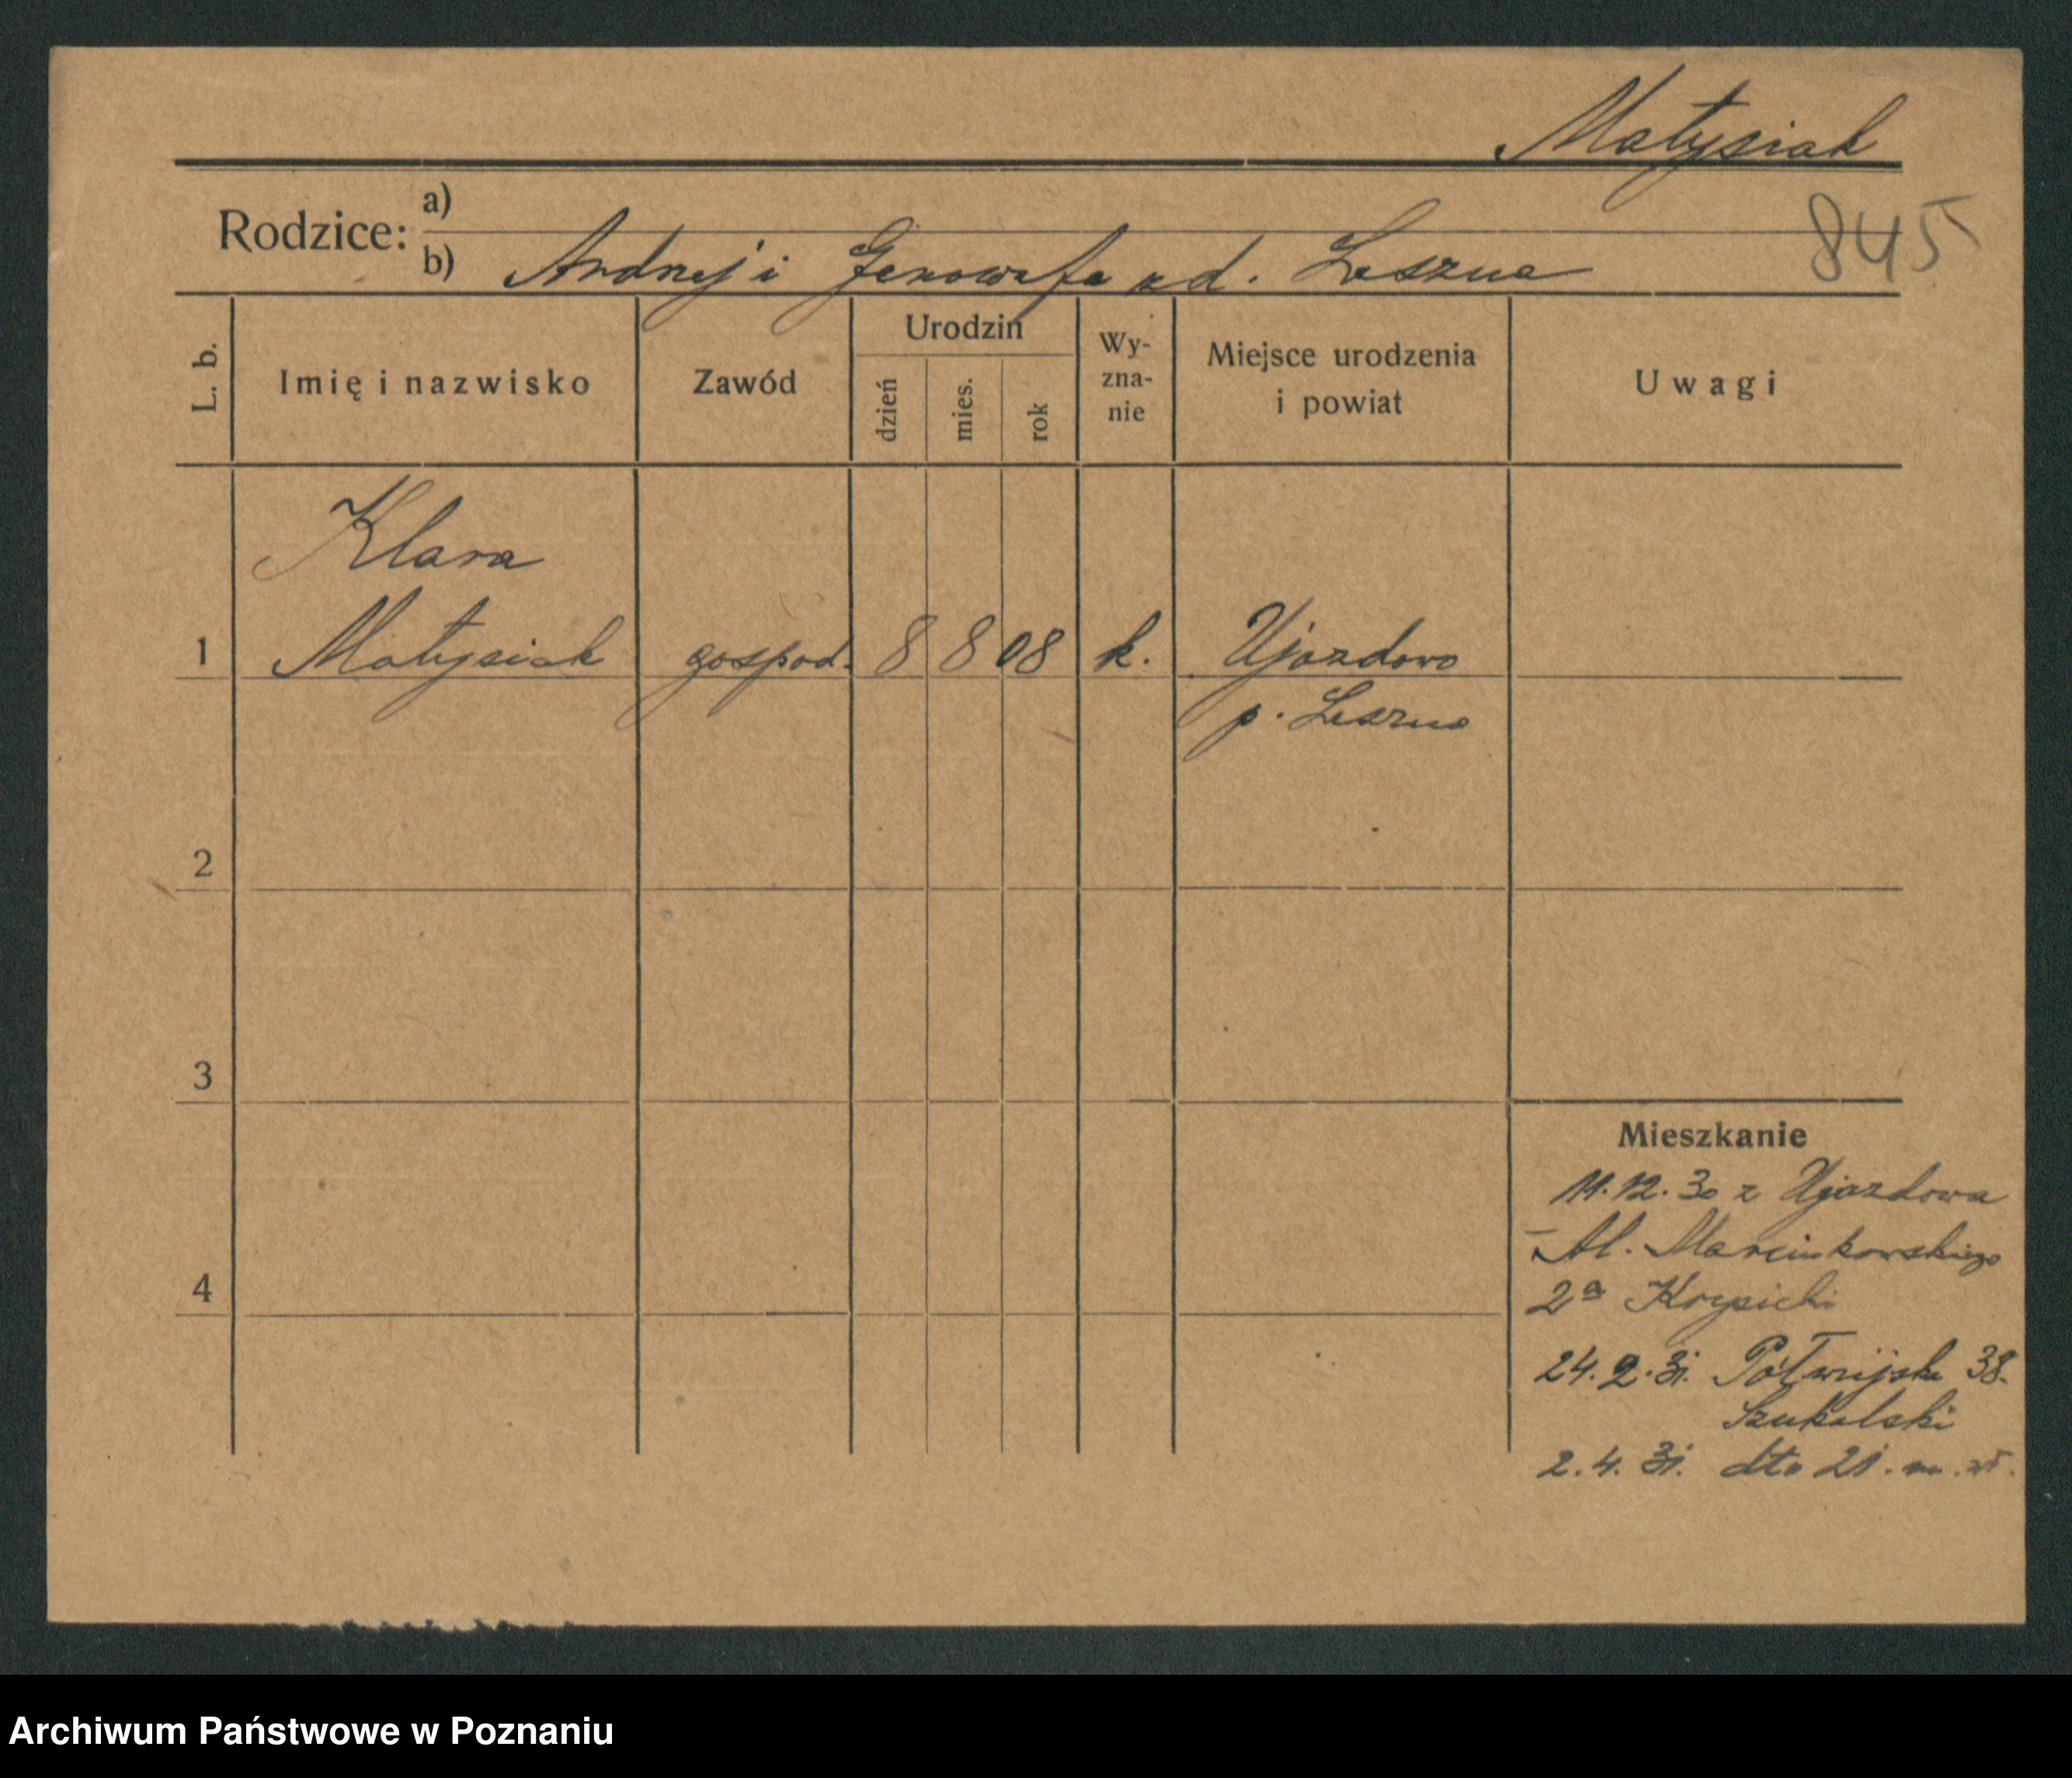 Matysiak
845
Rodzice: a)
b) Andrzej i Genowefa zd. Leszna
L. b.
Imię i nazwisko
Zawód
Urodzin
dzień
mies.
rok
Wy-
zna-
nie
Miejsce urodzenia
i powiat
Uwagi
Klara
1 Matysiak gospod. 8 8 08 k. Ujazdowo
p. Leszno
2
3
4
Mieszkanie
11.12.30 z Ujazdowa
Al. Marcinkowskiego
2a
24.2.31. Półwiejska 38.
Szukalski
2.4.31. dto 21.
Archiwum Państwowe w Poznaniu